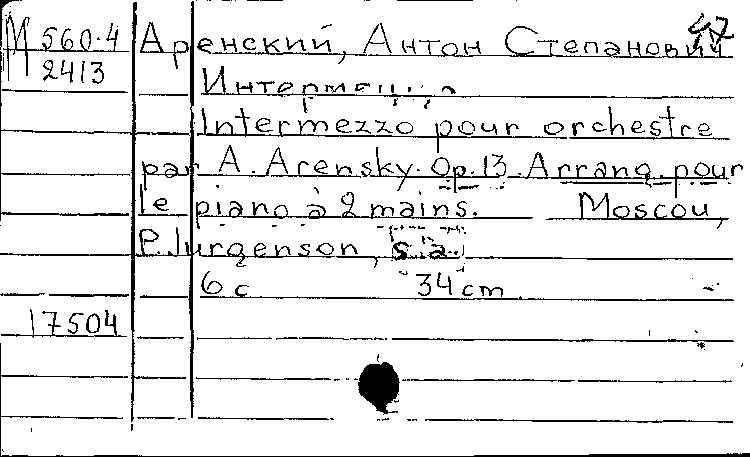 M 560.4
2413
47
Аренский, Антон Степанович
Интермеццо
Intermezzo pour orchestre
par A. Arensky. Op. 13. Arrang. pour
le piano à 2 mains. Moscou,
P. Jurgenson, s.a.
6 c 34 cm
17504